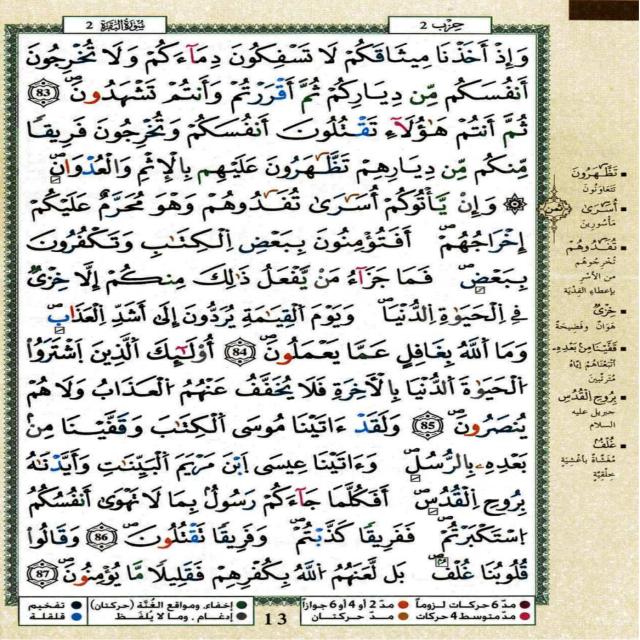 سُورَةُ البَقَرَة 2
حِزْب 2
وَإِذَ اَخَذْنَا مِيثَاقَكُمْ لَا تَسْفِكُونَ دِمَآءَكُمْ وَلَا تُخْرِجُونَ
أَنفُسَكُم مِّن دِيَارِكُمْ ثُمَّ أَقْرَرْتُمْ وَأَنتُمْ تَشْهَدُونَ 83
ثُمَّ أَنتُمْ هَٰؤُلَآءِ تَقْتُلُونَ أَنفُسَكُمْ وَتُخْرِجُونَ فَرِيقًا
مِّنكُم مِّن دِيَارِهِمْ تَظَّٰهَرُونَ عَلَيْهِم بِالْإِثْمِ وَالْعُدْوَانِ
۞ وَإِنْ يَّأْتُوكُمُ أُسَرَىٰ تُفَٰدُوهُمْ وَهْوَ مُحَرَّمٌ عَلَيْكُمُ
إِخْرَاجُهُمْ أَفَتُؤْمِنُونَ بِبَعْضِ اِلْكِتَٰبِ وَتَكْفُرُونَ
بِبَعْضٍ فَمَا جَزَآءُ مَنْ يَّفْعَلُ ذَٰلِكَ مِنكُمُ إِلَّا خِزْيٌ
فِي اِلْحَيَوٰةِ اِلدُّنْيَا وَيَوْمَ اَلْقِيَٰمَةِ يُرَدُّونَ إِلَىٰ أَشَدِّ اِلْعَذَابِ
وَمَا اَللَّهُ بِغَٰفِلٍ عَمَّا يَعْمَلُونَ 84 أُوْلَٰئِكَ اَلَّذِينَ اَشْتَرَوُا
اُلْحَيَوٰةَ اَلدُّنْيَا بِالْأَخِرَةِ فَلَا يُخَفَّفُ عَنْهُمُ اُلْعَذَابُ وَلَا هُمْ
يُنصَرُونَ 85 وَلَقَدْ ءَاتَيْنَا مُوسَى اَلْكِتَٰبَ وَقَفَّيْنَا مِنۢ
بَعْدِهِۦ بِالرُّسُلِ وَءَاتَيْنَا عِيسَى اَبْنَ مَرْيَمَ اَلْبَيِّنَٰتِ وَأَيَّدْنَٰهُ
بِرُوحِ اِلْقُدُسِ أَفَكُلَّمَا جَآءَكُمْ رَسُولٌۢ بِمَا لَا تَهْوَىٰ أَنفُسُكُمُ
اُسْتَكْبَرْتُمْ فَفَرِيقًا كَذَّبْتُمْ وَفَرِيقًا تَقْتُلُونَ 86 وَقَالُوا
قُلُوبُنَا غُلْفٌ بَل لَّعَنَهُمُ اُللَّهُ بِكُفْرِهِمْ فَقَلِيلًا مَّا يُؤْمِنُونَ 87
ثمن
▪ تَظَّٰهَرُونَ
تَتَعَاوَنُونَ
▪ أُسَرَىٰ
مَأْسُورِينَ
▪ تُفَٰدُوهُمْ
تُخْرِجُوهُم
من الأسْرِ
بإعطاءِ الفِدْيَة
▪ خِزْيٌ
هَوَانٌ وفضِيحةٌ
▪ قَفَّيْنَا مِنۢ بَعْدِهِۦ
أتْبَعْنَاهُمْ إيَّاهُ
مُتَرتِّبينَ
▪ بِرُوحِ اِلْقُدُسِ
جبريل عليه
السلام
▪ غُلْفٌ
مُغَشَّاةٌ بأغشيَةٍ
خِلْقيَّةٍ
مدّ 6 حركات لزوماً
مدّ 2 أو 4 أو 6 جوازاً
إخفاء، ومواقع الغُنَّة (حركتان)
تفخيم
مدّ متوسط 4 حركات
مدّ حركتان
إدغام ، وما لا يُلفَظ
قلقلة
13